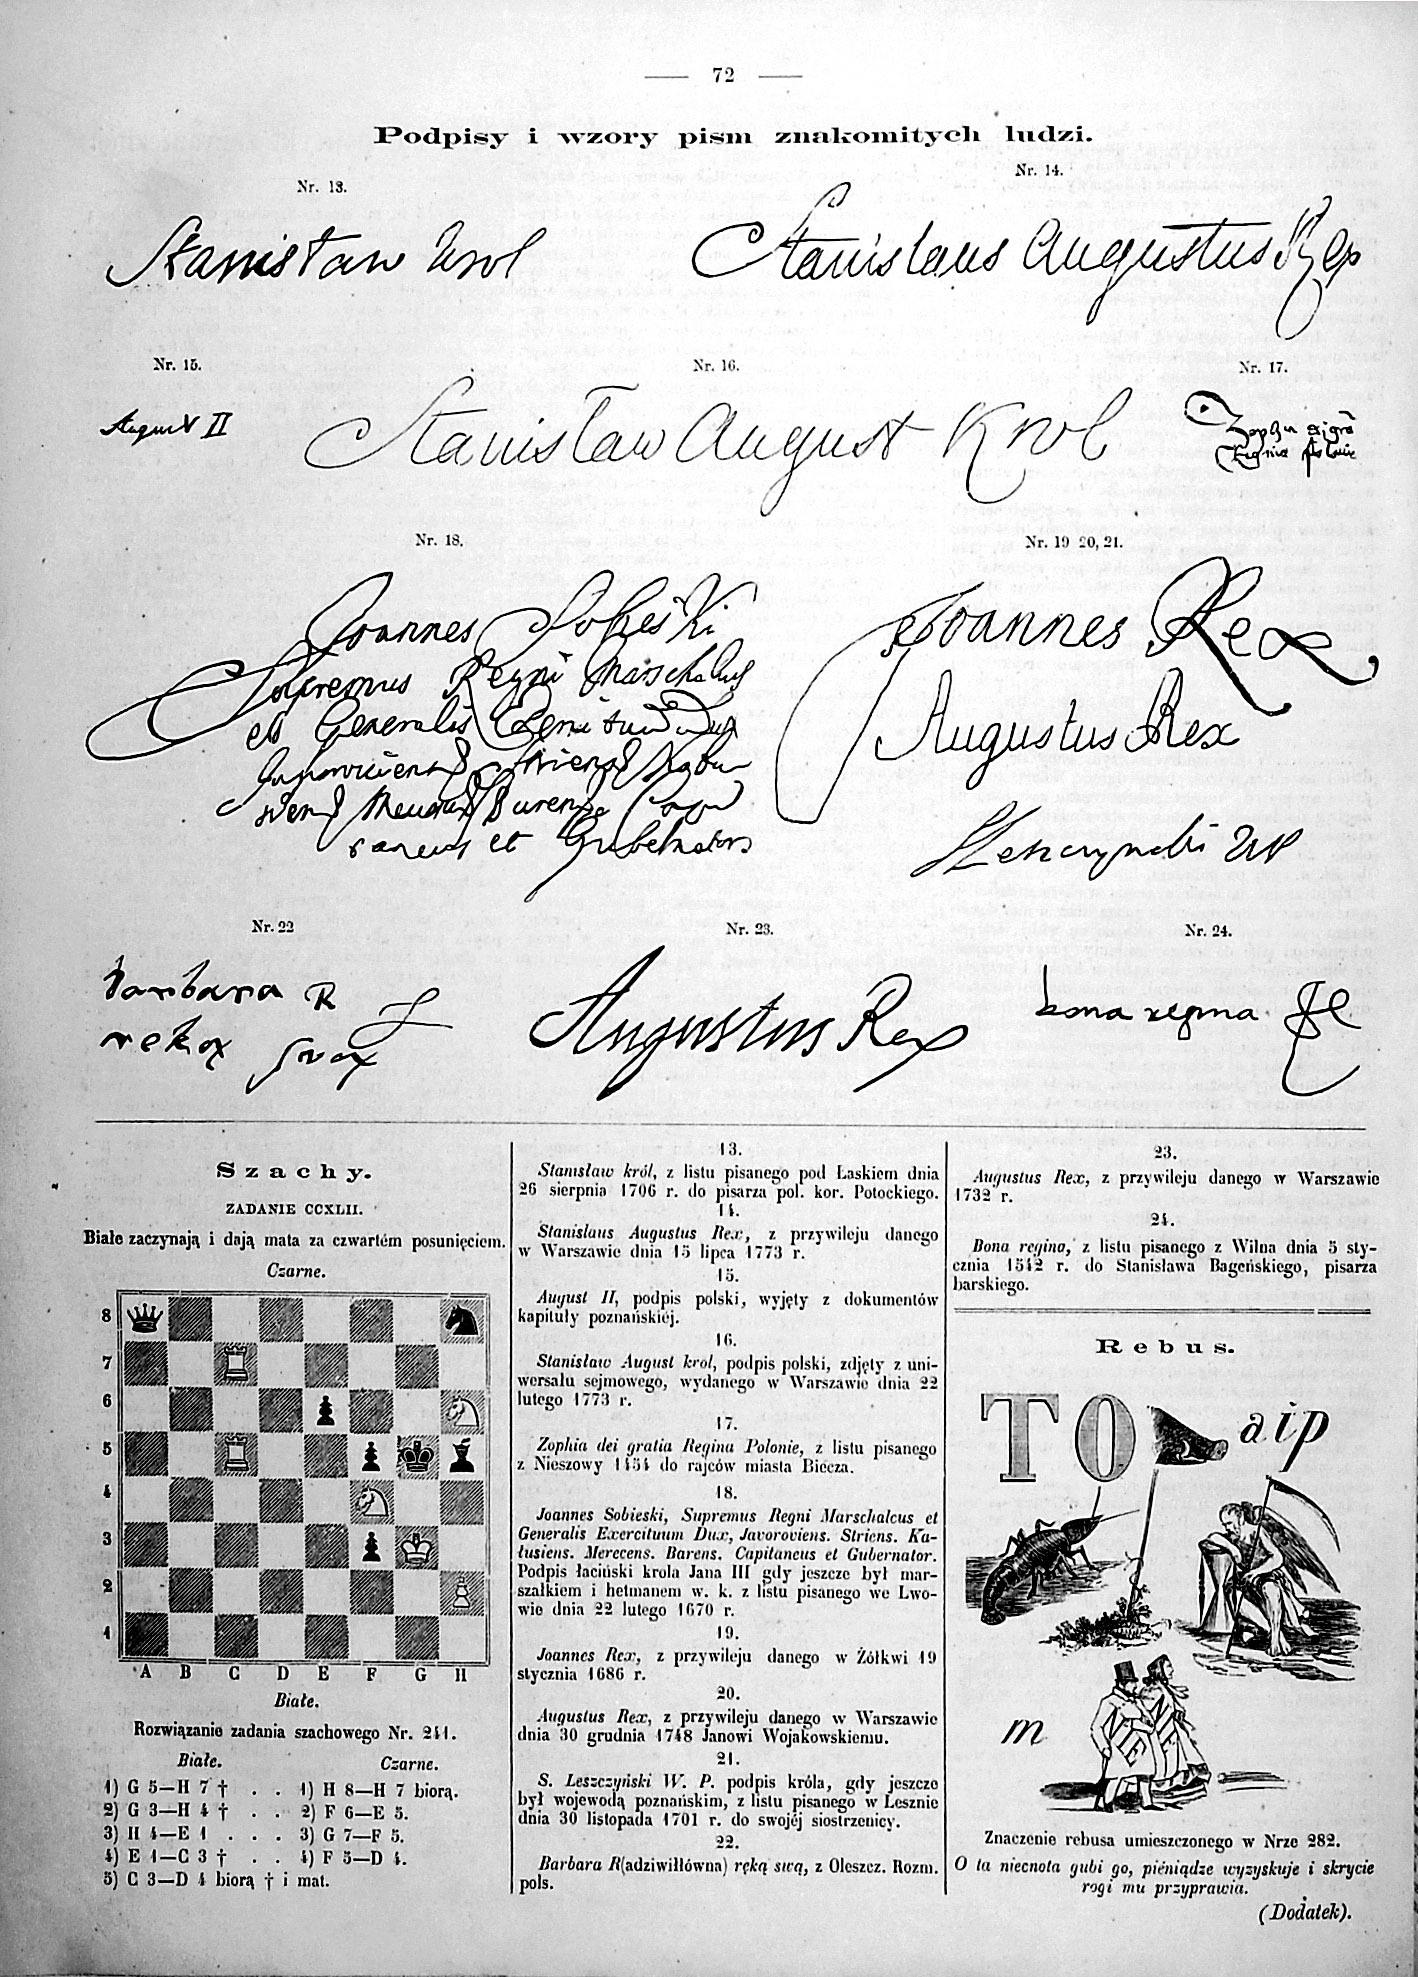 72
Podpisy i wzory pism znakomitych ludzi.
Nr. 13.
Nr. 14.
Stanisław Krol
Stanislaus Augustus Rex
Nr. 15.
Nr. 16.
Nr. 17.
August II
Stanisław August Krol
Nr. 18.
Nr. 19 20, 21.
Joannes Sobieski
Supremus Regni Marschalcus
et Generalis
et Gubernator
Joannes Rex
Augustus Rex
Nr. 22
Nr. 23.
Nr. 24.
barbara R
Augustus Rex
bona regina
Szachy.
ZADANIE CCXLII.
Białe zaczynają i dają mata za czwartém posunięciem.
Czarne.
8
7
6
5
4
3
2
1
A B C D E F G H
Białe.
Rozwiązanie zadania szachowego Nr. 241.
Białe. Czarne.
1) G 5—H 7 † . . 1) H 8—H 7 biorą.
2) G 3—H 4 † . . 2) F 6—E 5.
3) H 4—E 1 . . . 3) G 7—F 5.
4) E 1—C 3 † . . 4) F 5—D 4.
5) C 3—D 4 biorą † i mat.
13.
Stanisław król, z listu pisanego pod Łaskiem dnia
26 sierpnia 1706 r. do pisarza pol. kor. Potockiego.
14.
Stanislaus Augustus Rex, z przywileju danego
w Warszawie dnia 15 lipca 1773 r.
15.
August II, podpis polski, wyjęty z dokumentów
kapituły poznańskiéj.
16.
Stanisław August krol, podpis polski, zdjęty z uni-
wersału sejmowego, wydanego w Warszawie dnia 22
lutego 1773 r.
17.
Zophia dei gratia Regina Polonie, z listu pisanego
z Nieszowy 1454 do rajców miasta Biecza.
18.
Joannes Sobieski, Supremus Regni Marschalcus et
Generalis Exercituum Dux, Javoroviens. Striens. Ka-
łusiens. Merecens. Barens. Capitaneus et Gubernator.
Podpis łaciński krola Jana III gdy jeszcze był mar-
szałkiem i hetmanem w. k. z listu pisanego we Lwo-
wie dnia 22 lutego 1670 r.
19.
Joannes Rex, z przywileju danego w Żółkwi 19
stycznia 1686 r.
20.
Augustus Rex, z przywileju danego w Warszawie
dnia 30 grudnia 1748 Janowi Wojakowskiemu.
21.
S. Leszczyński W. P. podpis króla, gdy jeszcze
był wojewodą poznańskim, z listu pisanego w Lesznie
dnia 30 listopada 1701 r. do swojéj siostrzenicy.
22.
Barbara R(adziwiłłówna) ręką swą, z Oleszcz. Rozm.
pols.
23.
Augustus Rex, z przywileju danego w Warszawie
1732 r.
24.
Bona regina, z listu pisanego z Wilna dnia 5 sty-
cznia 1542 r. do Stanisława Bageńskiego, pisarza
barskiego.
Rebus.
TO aip
m
Znaczenie rebusa umieszczonego w Nrze 282.
O ta niecnota gubi go, piéniądze wyzyskuje i skrycie
rogi mu przyprawia.
(Dodatek).